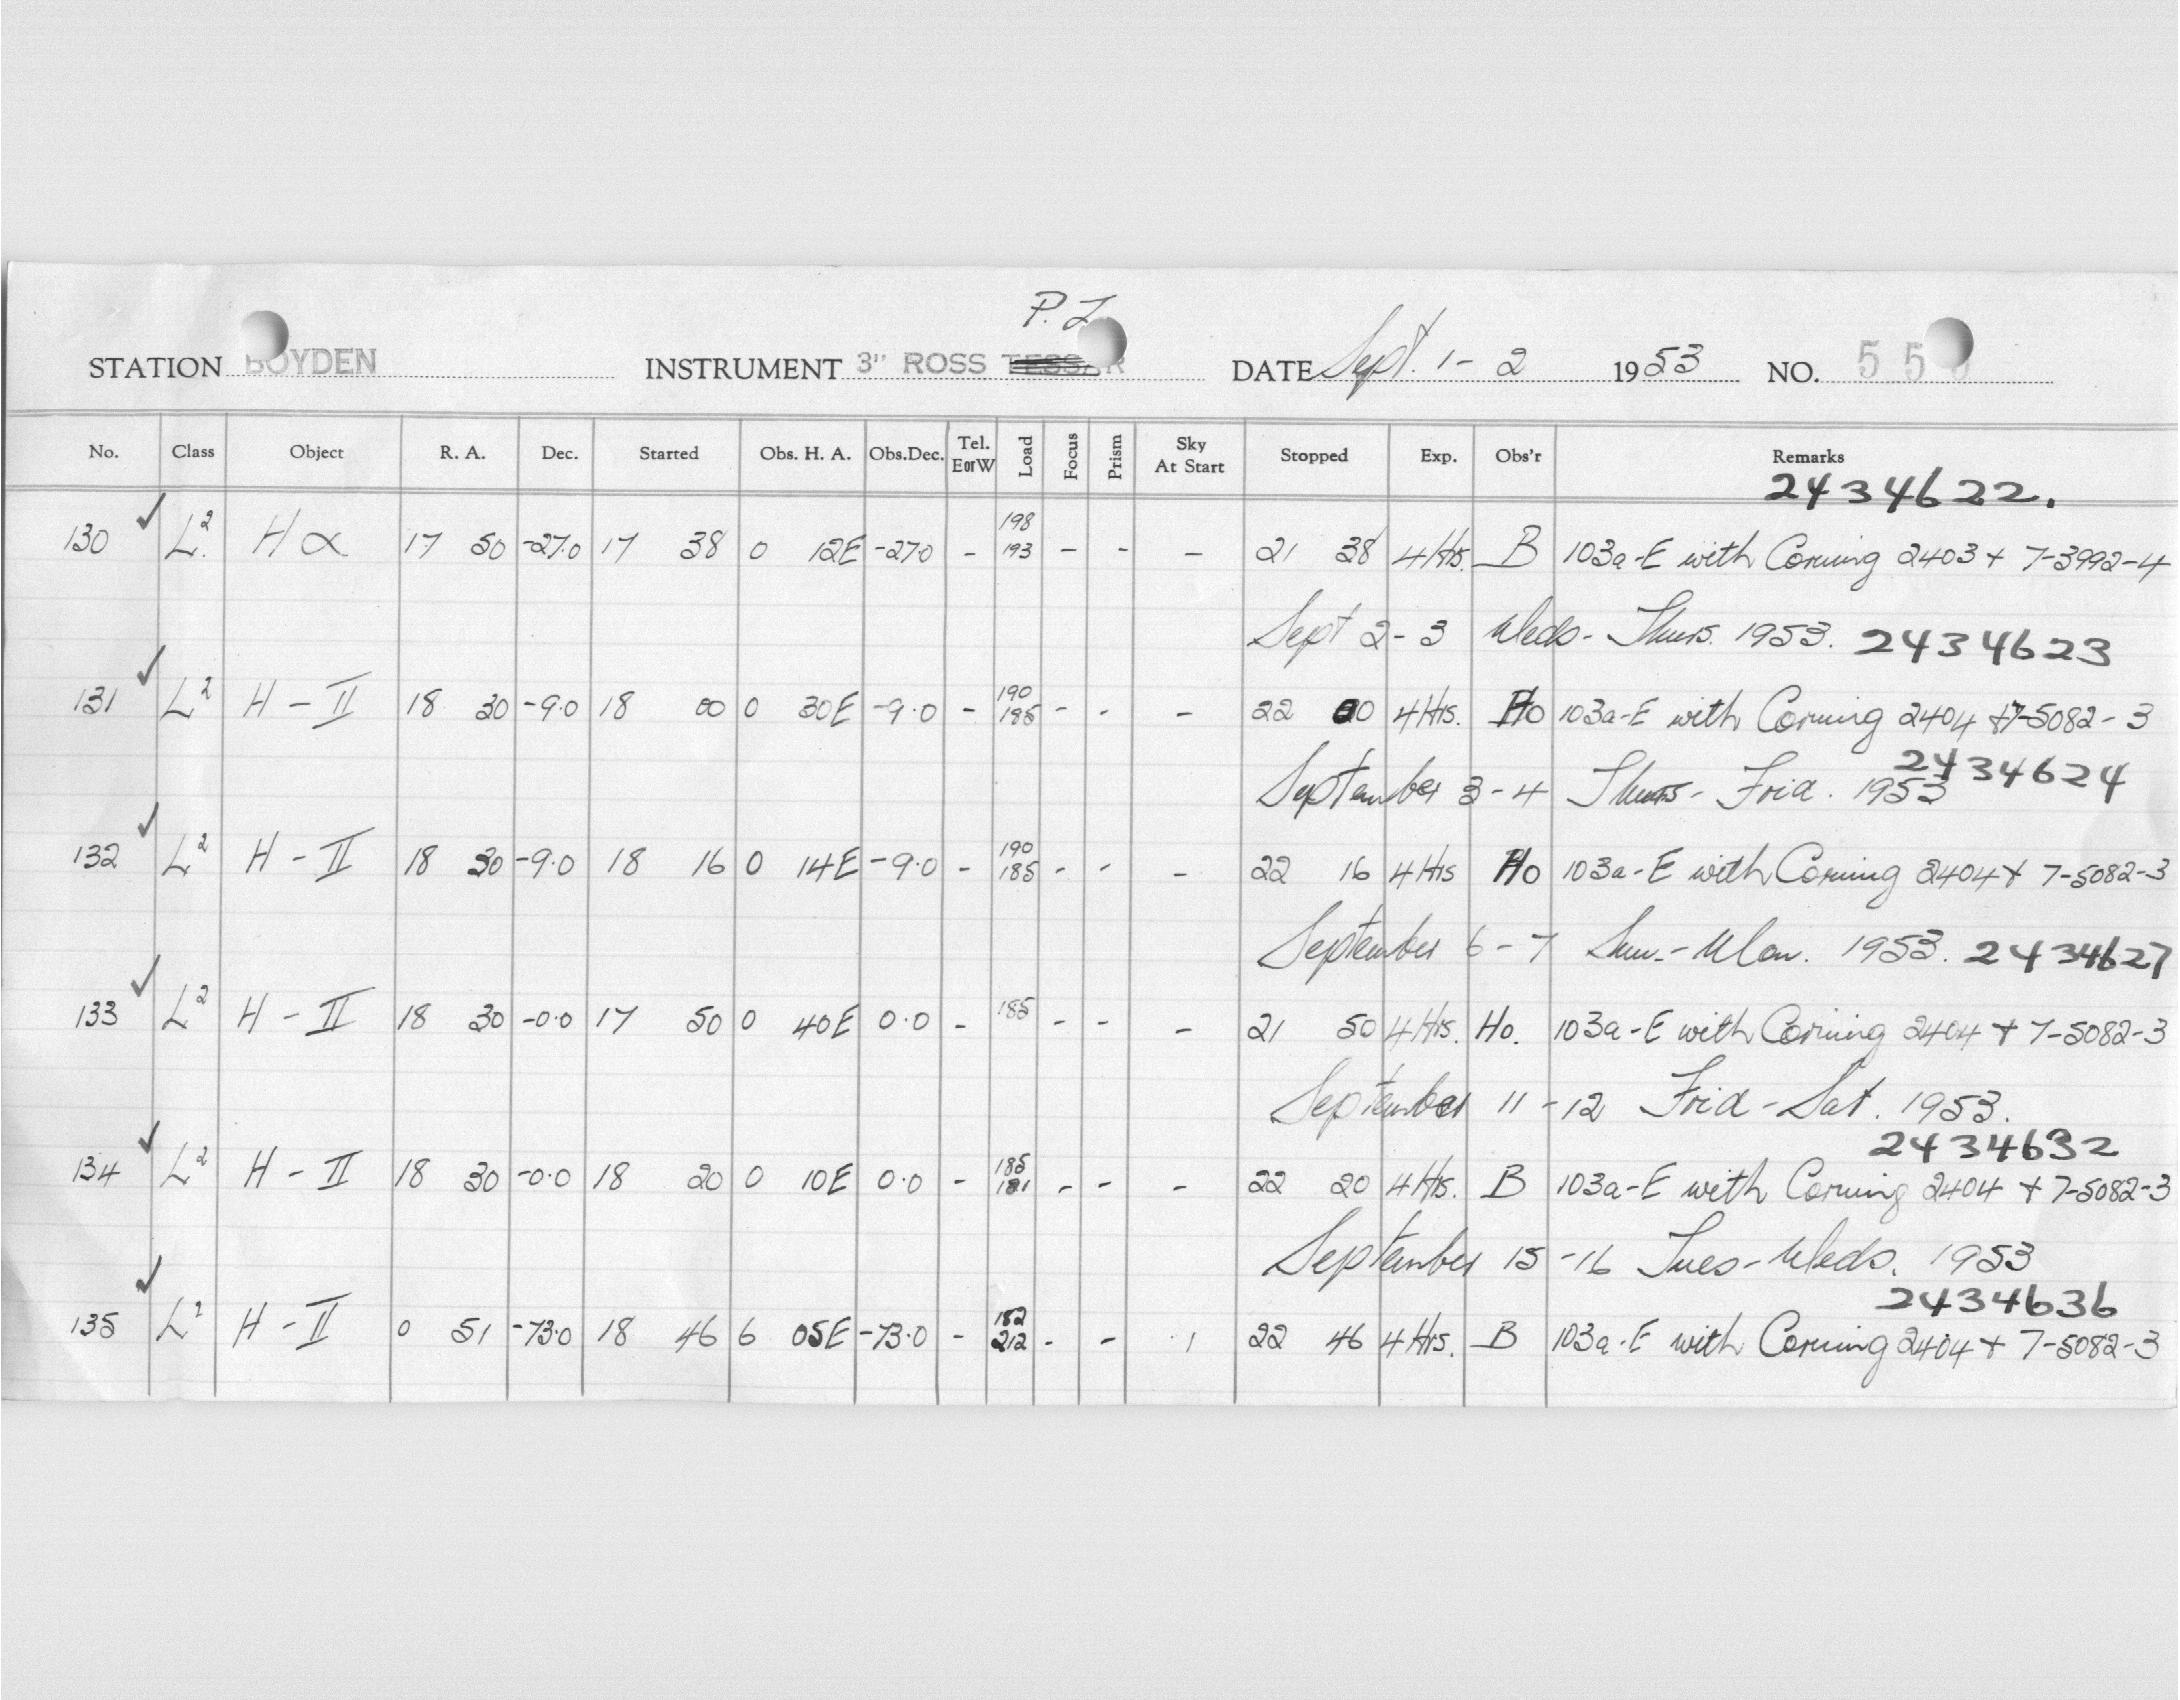 P. Z
STATION BOYDEN INSTRUMENT 3" ROSS TESSAR DATE Sept. 1-2 1953 NO. 55
No. Class Object R. A. Dec. Started Obs. H. A. Obs.Dec. Tel. EorW Load Focus Prism Sky At Start Stopped Exp. Obs'r Remarks
2434622.
130 ✓ L². H α 17 50 -27.0 17 38 0 12E -27.0 - 198 193 - - - 21 38 4 Hrs. B 103a-E with Corning 2403 + 7-3992-4
Sept 2-3 Weds-Thurs. 1953. 2434623
131 ✓ L² H-II 18 30 -9.0 18 00 0 30E -9.0 - 190 185 - - - 22 00 4 Hrs. Ho 103a-E with Corning 2404 + 7-5082-3
2434624
September 3-4 Thurs-Frid. 1953
132 ✓ L² H-II 18 30 -9.0 18 16 0 14E -9.0 - 190 185 - - - 22 16 4 Hrs Ho 103a-E with Corning 2404 + 7-5082-3
September 6-7 Sun.-Mon. 1953. 2434627
133 ✓ L² H-II 18 30 -0.0 17 50 0 40E 0.0 - 185 - - - 21 50 4 Hrs. Ho. 103a-E with Corning 2404 + 7-5082-3
September 11-12 Frid-Sat. 1953.
2434632
134 ✓ L² H-II 18 30 -0.0 18 20 0 10E 0.0 - 185 181 - - - 22 20 4 Hrs. B 103a-E with Corning 2404 + 7-5082-3
September 15-16 Tues-Weds. 1953
2434636
135 ✓ L² H-II 0 51 -73.0 18 46 6 05E -73.0 - 182 212 - - 1 22 46 4 Hrs. B 103a-E with Corning 2404 + 7-5082-3